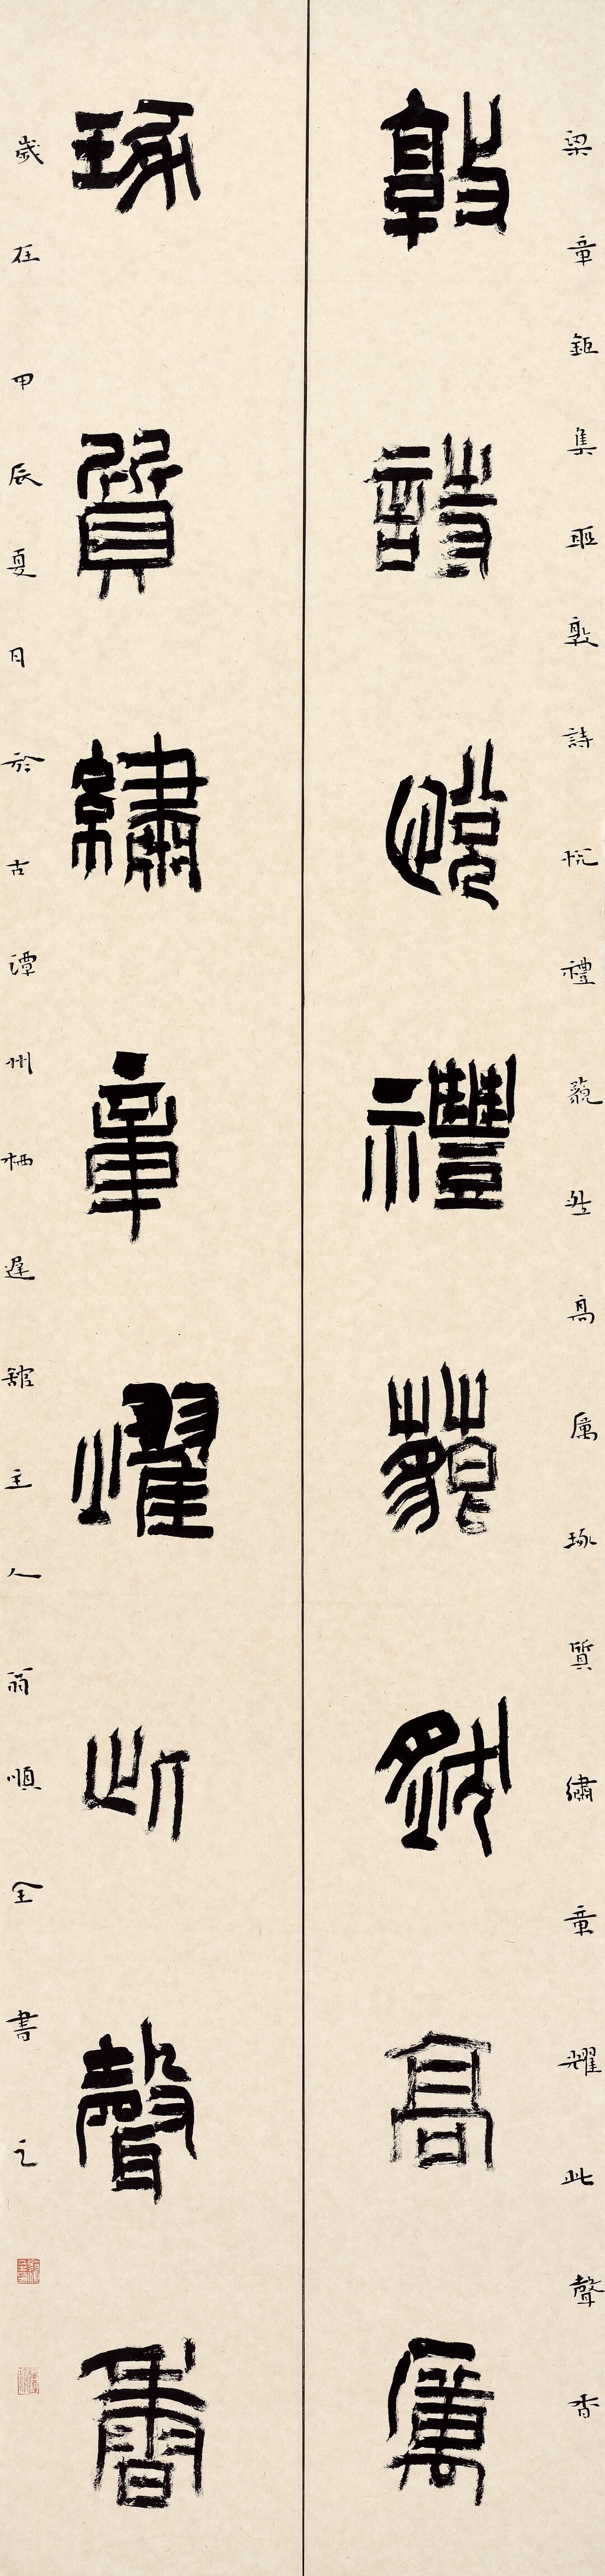 梁章鉅集聯敦詩悅禮藐然高厲琢質繡章耀此聲香
敦詩悅禮藐然高厲
琢質繡章耀此聲香
歲在甲辰夏月於古潭州栖遲舘主人翁順全書之